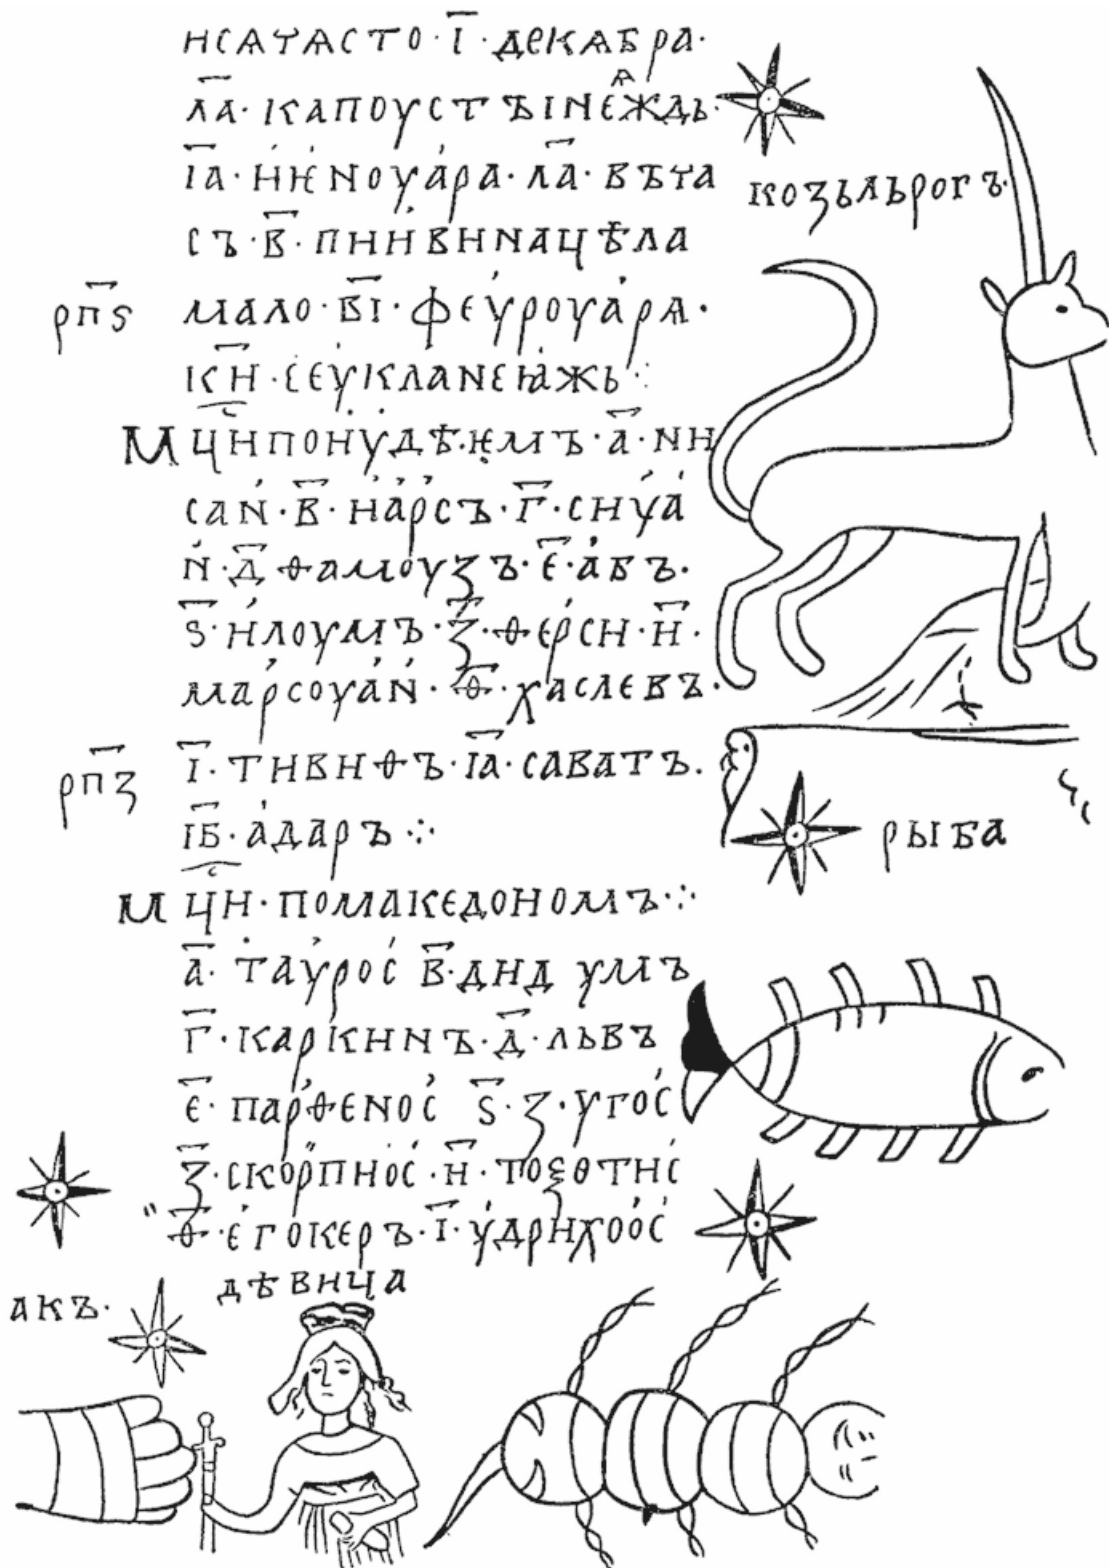 нсѧтѧсто·і҃·декѧбра·
ла҃·капоустъінеѧ҄ждь·
іа҃·нѥноуара·ла҃·вѣта
съ·в҃·пнивнnaцѣла
козьльрогъ·
рп҃ѕ мало·ві҃·феуроуарѧ·
кн҃·сеукланеꙗжь⁘
мцⷭ҇нпонудѣѥмъ·а҃·нн
сан·в҃·нарсъ·г҃·снуа
н·д҃·ѳамоузъ·е҃·абъ·
ѕ҃·нлоумъ·з҃·ѳерсн·н҃·
марсоуан·ѳ҃·хаслевъ·
рп҃з і҃·тнвнѳъ·іа҃·саватъ·
іб҃·адаръ⁘
рыба
мцⷭ҇н·помакедономъ⁘
а҃·таурос в҃·днд умъ
г҃·каркннъ·д҃·львъ
е҃·парѳенос ѕ҃·з·угос
з҃·скорпнос·н҃·тоѯотнс
ѳ҃·егокеръ·і҃·удрнхоос
акъ·
дѣвнца